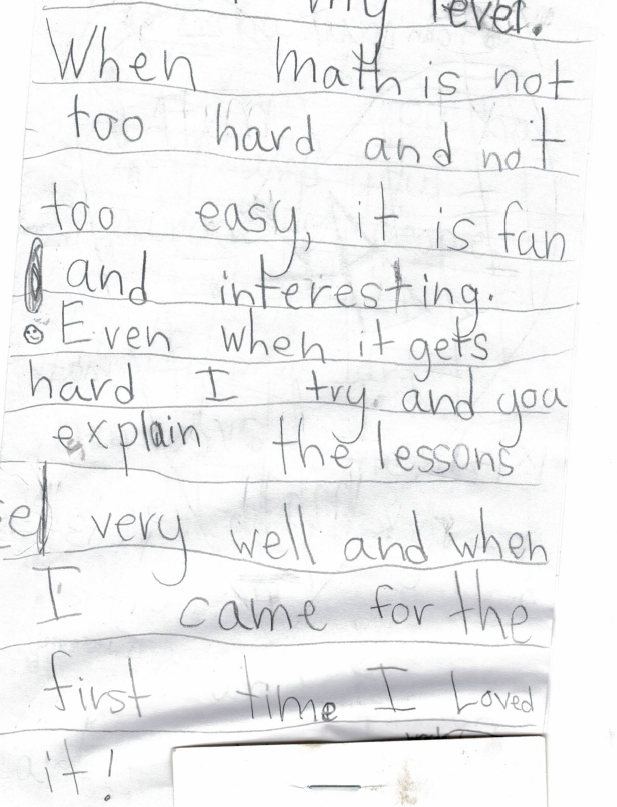 my level.
When math is not
too hard and not
too easy, it is fun
and interesting.
Even when it gets
hard I try. and you
explain the lessons
very well and when
I came for the
first time I Loved
it!